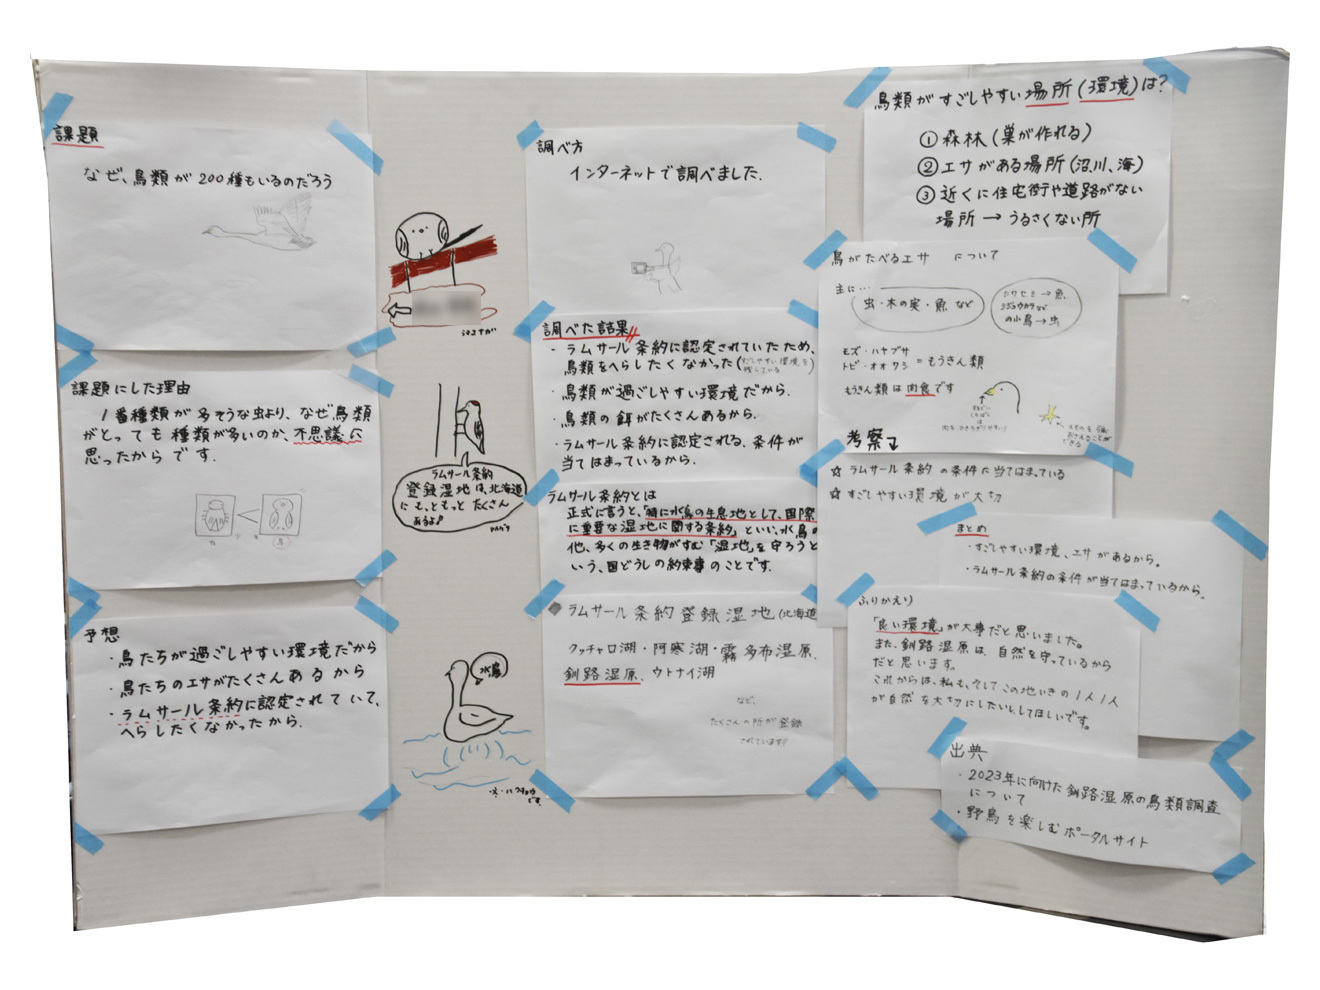 課題
なぜ、鳥類が200種もいるのだろう
課題にした理由
1番種類が多そうな虫より、なぜ鳥類
がとっても種類が多いのか、不思議に
思ったからです。
予想
・鳥たちが過ごしやすい環境だから
・鳥たちのエサがたくさんあるから
・ラムサール条約に認定されていて、
へらしたくなかったから.
ラムサール条約
登録湿地は、北海道
にも、もっとたくさん
あるよ♪
水鳥
調べ方
インターネットで調べました.
調べた結果
・ラムサール条約に認定されていたため、
鳥類をへらしたくなかった
・鳥類が過ごしやすい環境だから.
・鳥類の餌がたくさんあるから.
・ラムサール条約に認定される、条件が
当てはまっているから.
ラムサール条約とは
正式に言うと、「特に水鳥の生息地として、国際
に重要な湿地に関する条約」といい、水鳥の
他、多くの生き物がすむ「湿地」を守ろうと
いう、国どうしの約束事のことです.
ラムサール条約登録湿地(北海道
クッチャロ湖・阿寒湖・霧多布湿原、
釧路湿原、ウトナイ湖
など、
たくさんの所が登録
されています
鳥類がすごしやすい場所(環境)は?
①森林(巣が作れる)
②エサがある場所(沼、川、海)
③近くに住宅街や道路がない
場所→うるさくない所
鳥がたべるエサ について
主に…
虫・木の実・魚など
の小鳥→虫
モズ・ハヤブサ
トビ・オオワシ=もうきん類
もうきん類は肉食です
考察
☆ラムサール条約の条件に当てはまっている
☆すごしやすい環境が大切
まとめ
・すごしやすい環境、エサがあるから。
・ラムサール条約の条件が当てはまっているから。
ふりかえり
「良い環境」が大事だと思いました。
また、釧路湿原は、自然を守っているから
だと思います。
これからは、私も、そしてこの地いきの1人1人
が自然を大切にしたいとしてほしいです。
出典
・2023年に向けた釧路湿原の鳥類調査
について
・野鳥を楽しむポータルサイト